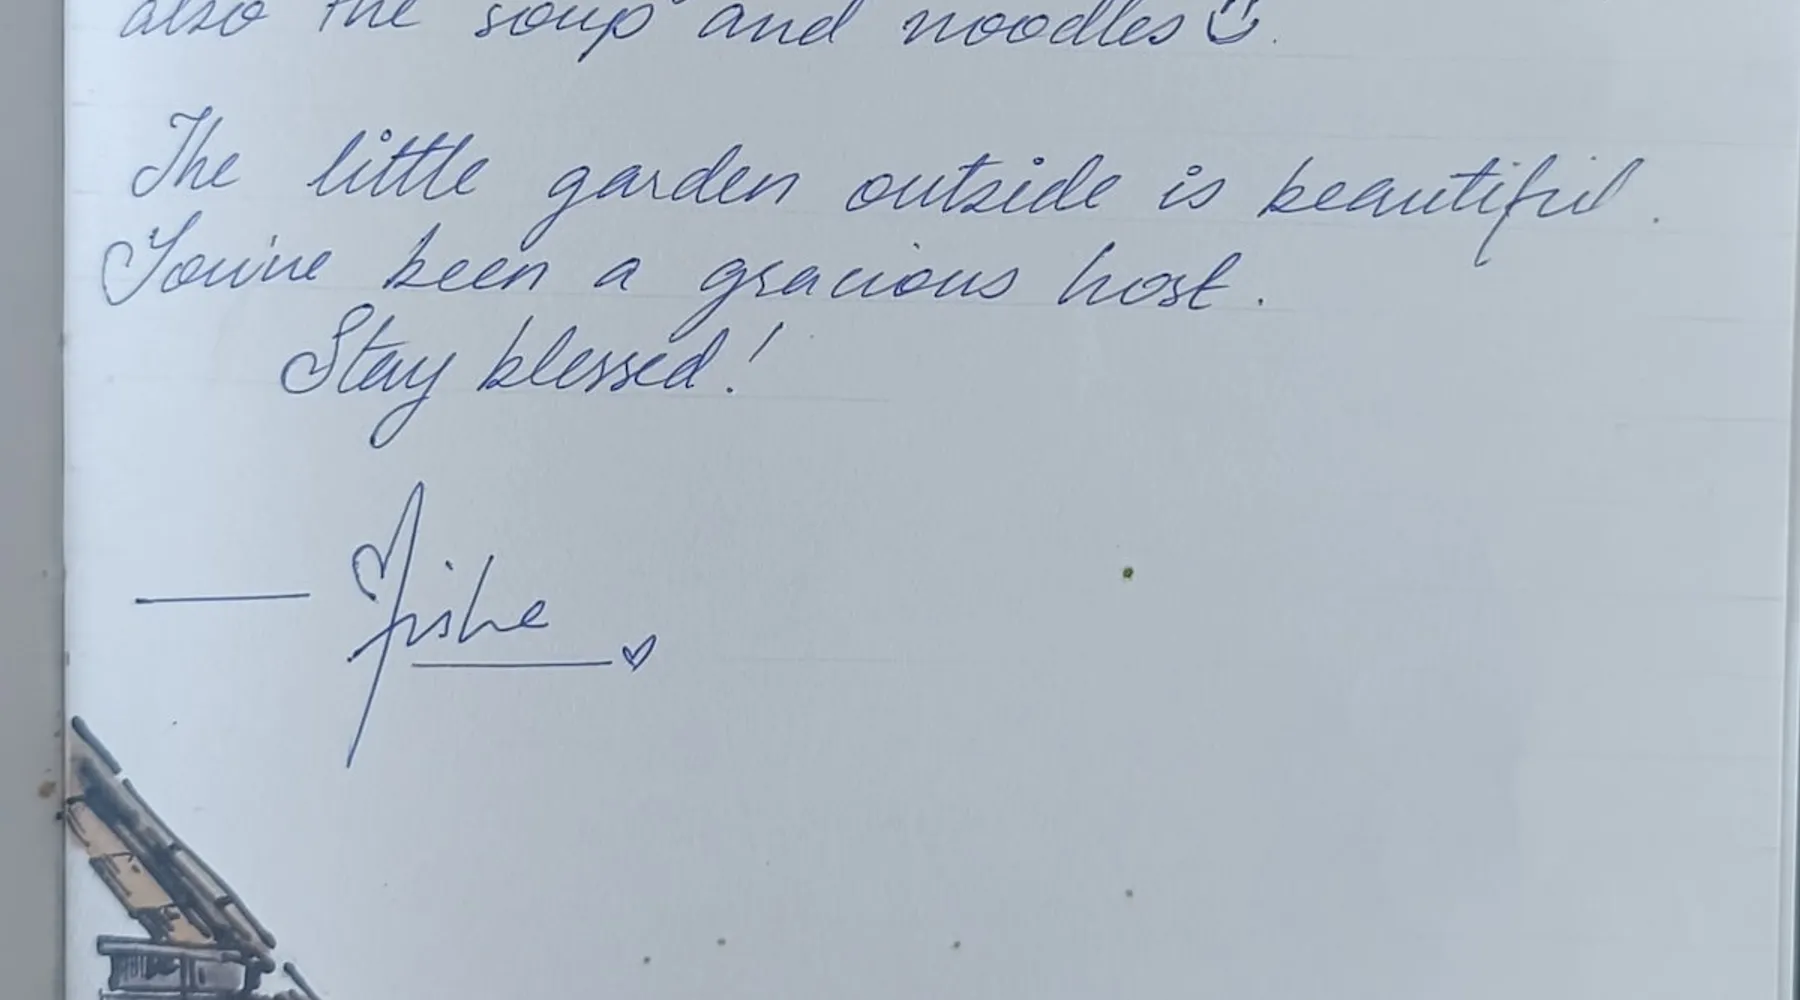 also the soup and noodles☺.
The little garden outside is beautiful.
You've been a gracious host.
Stay blessed!